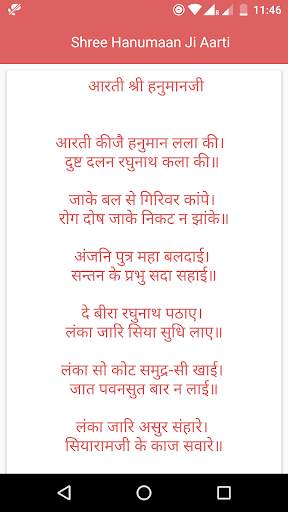 11:46
Shree Hanumaan Ji Aarti
आरती श्री हनुमानजी
आरती कीजै हनुमान लला की।
दुष्ट दलन रघुनाथ कला की॥
जाके बल से गिरिवर कांपे।
रोग दोष जाके निकट न झांके॥
अंजनि पुत्र महा बलदाई।
सन्तन के प्रभु सदा सहाई॥
दे बीरा रघुनाथ पठाए।
लंका जारि सिया सुधि लाए॥
लंका सो कोट समुद्र-सी खाई।
जात पवनसुत बार न लाई॥
लंका जारि असुर संहारे।
सियारामजी के काज सवारे॥